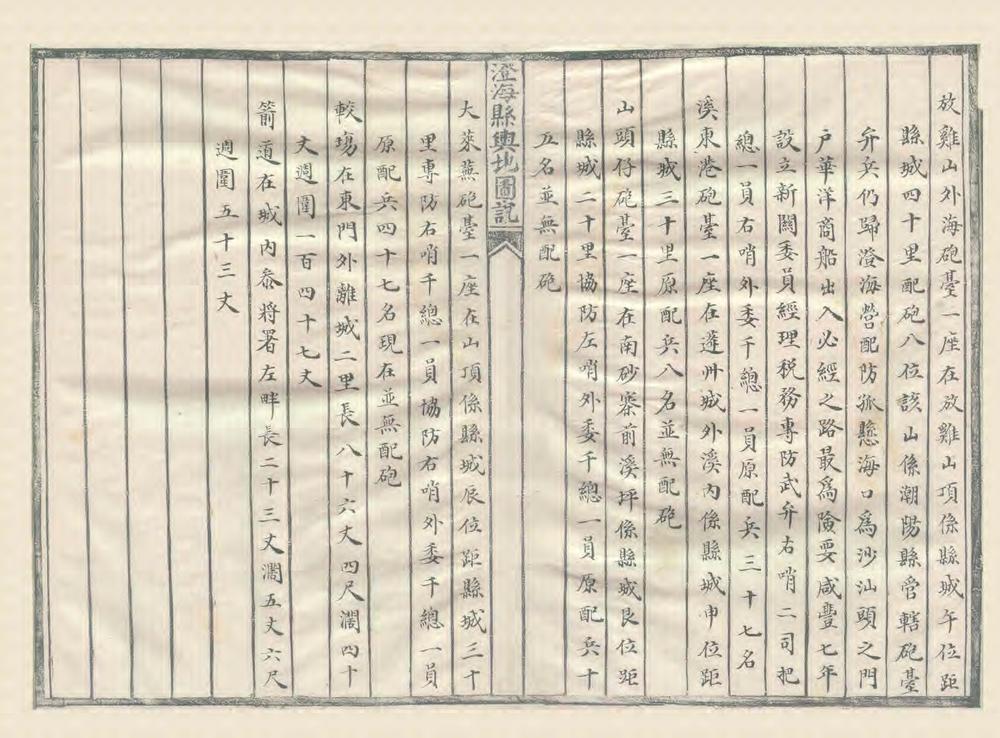 放雞山外海砲臺一座在放雞山頂係縣城午位距
縣城四十里配砲八位該山係潮陽縣管轄砲臺
弁兵仍歸澄海營配防孤懸海口為沙汕頭之門
戶華洋商船出入必經之路最為險要咸豐七年
設立新關委員經理稅務專防武弁右哨二司把
總一員右哨外委千總一員原配兵三十七名
溪東港砲臺一座在蓬州城外溪內係縣城申位距
縣城三十里原配兵八名並無配砲
山頭仔砲臺一座在南砂寨前溪坪係縣城艮位距
縣城二十里協防左哨外委千總一員原配兵十
五名並無配砲
澄海縣輿地圖說
大萊蕪砲臺一座在山頂係縣城辰位距縣城三十
里專防右哨千總一員協防右哨外委千總一員
原配兵四十七名現在並無配砲
較塲在東門外離城二里長八十六丈四尺濶四十
丈週圍一百四十七丈
箭道在城內叅將署左畔長二十三丈濶五丈六尺
週圍五十三丈